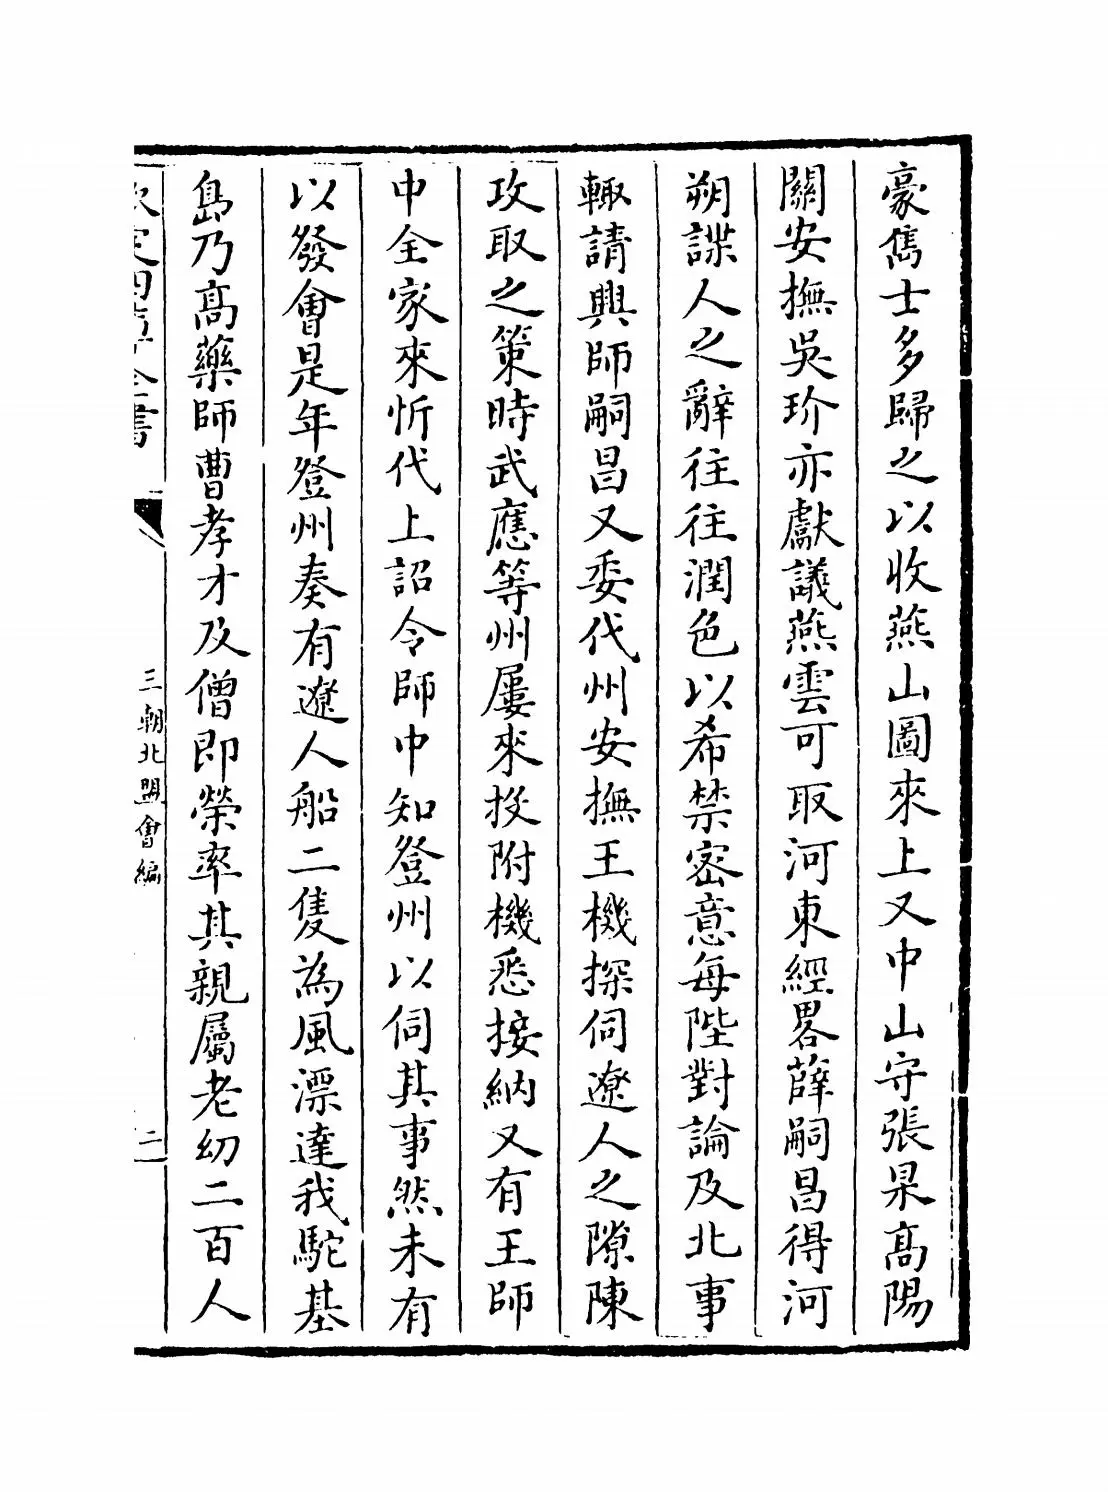 豪雋士多歸之以收燕山圖來上又中山守張杲髙陽
關安撫吳玠亦獻議燕雲可取河東經畧薛嗣昌得河
朔諜人之辭往往潤色以希禁密意每陛對論及北事
輙請興師嗣昌又委代州安撫王機探伺遼人之隙陳
攻取之策時武應等州屢來投附機悉接納又有王師
中全家來忻代上詔令師中知登州以伺其事然未有
以發會是年登州奏有遼人船二隻為風漂達我駝基
島乃髙藥師曹孝才及僧即榮率其親屬老幼二百人
欽定四庫全書
三朝北盟會編
二